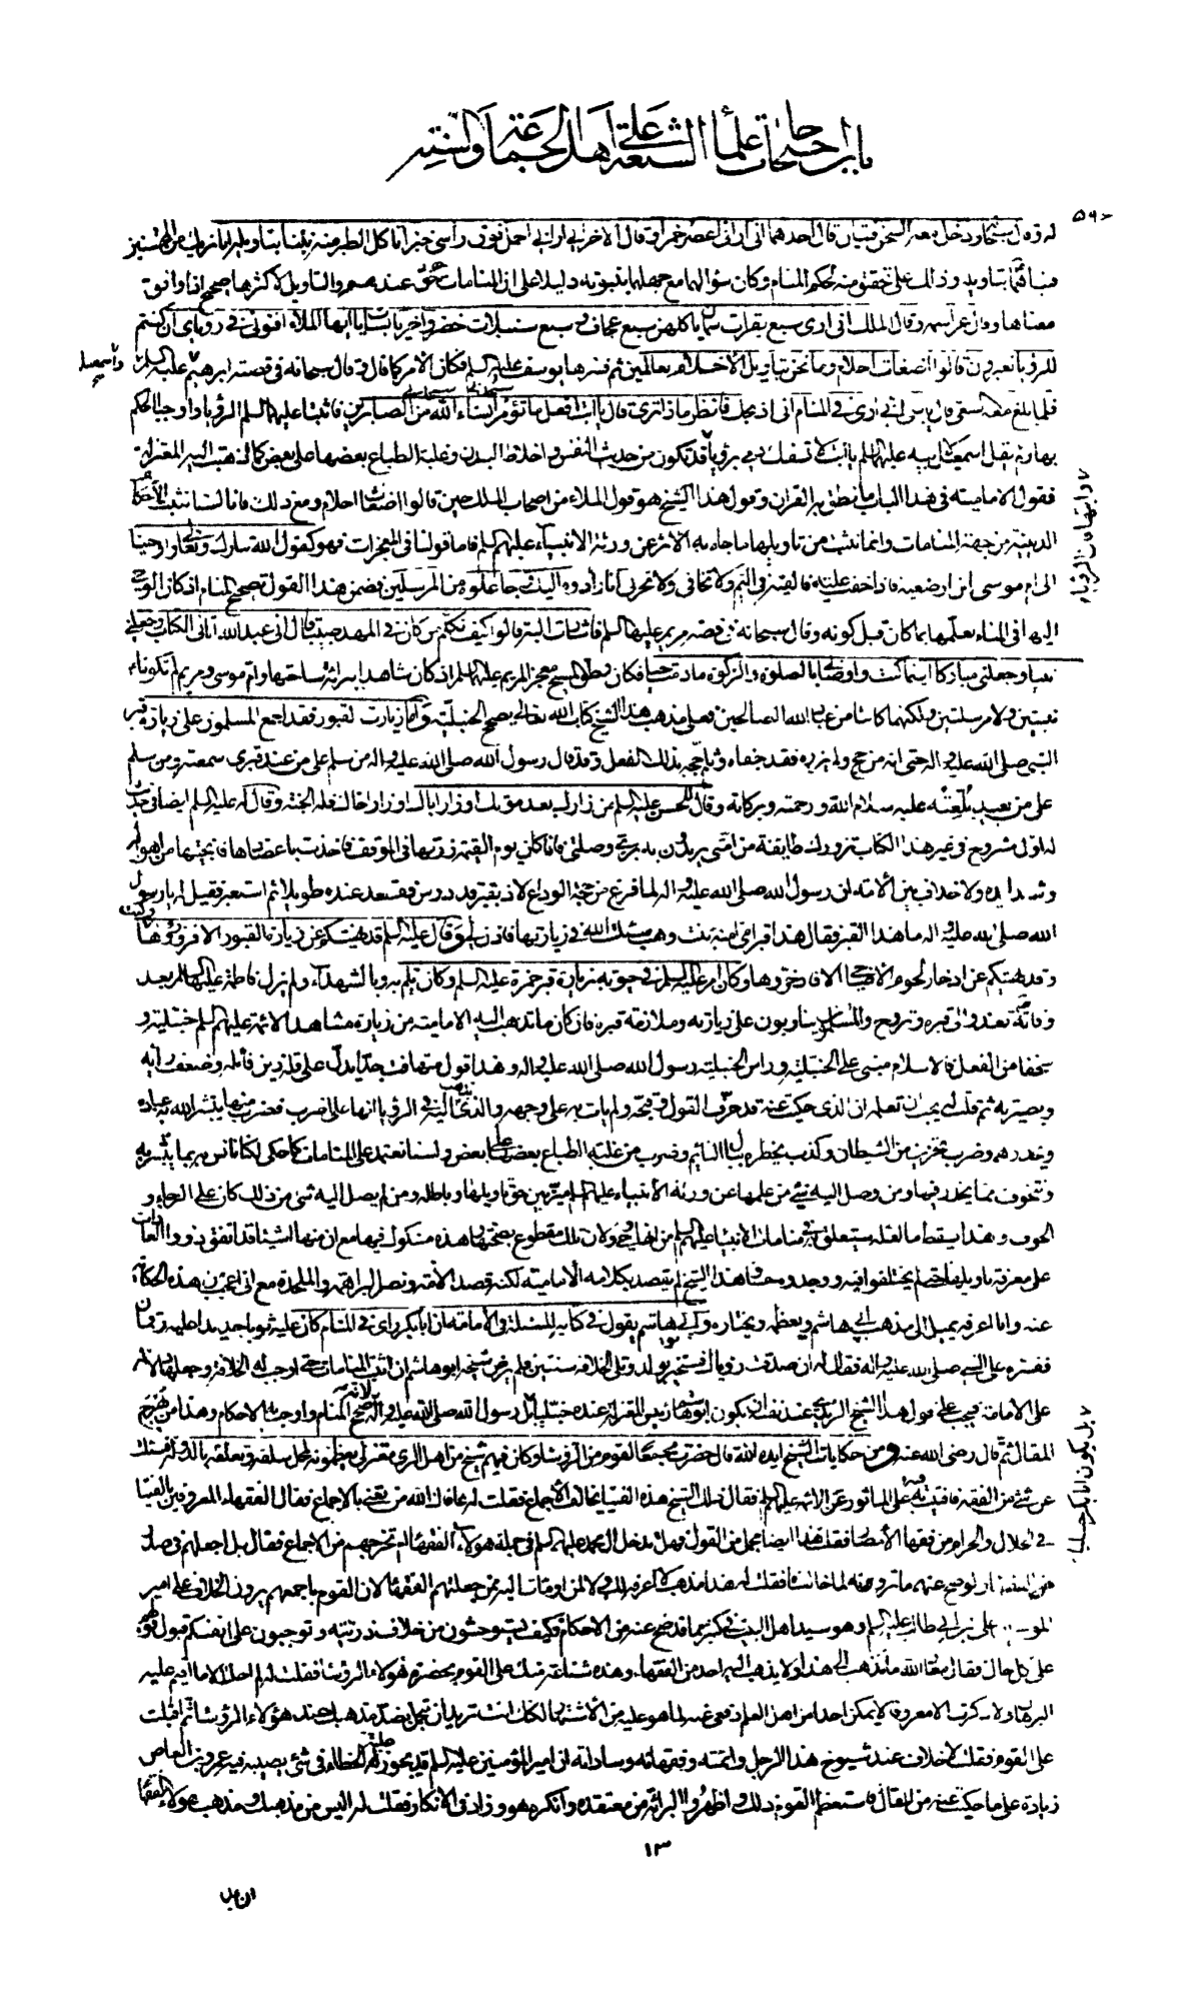 باب احتجاجات علماء الشيعة على أهل الجماعة والسنة
له ودخل معه السجن فتيان قال أحدهما انى أرانى أعصر خمرا وقال الاخر انى أرانى أحمل فوق رأسى خبزا تأكل الطير منه نبئنا بتأويله انا نريك من المحسنين
فنبأهما بتأويله وذلك على تحقيق منه لحكم المنام وكان سؤالهما مع جهلهما بنبوته دليلا على ان المنامات حق عندهم والتأويل لأكثرها صحيح اذا وافق
معناها وقال عز اسمه وقال الملك انى أرى سبع بقرات سمان يأكلهن سبع عجاف و سبع سنبلات خضر وأخر يابسات يا أيها الملاء أفتونى فى رؤياى ان كنتم
للرؤيا تعبرون قالوا أضغاث أحلام وما نحن بتأويل الأحلام بعالمين ثم فسرها يوسف عليه السلم فكان الأمر كما قال وقال سبحانه فى قصة ابرهيم عليه السلم
واسمعيل
فلما بلغ معه السعى قال يا بنى انى أرى فى المنام انى أذبحك فانظر ماذا ترى قال يا أبت افعل ما تؤمر ستجدنى انشاء الله من الصابرين فاثبتا عليهما السلم الرؤيا وأوجبا الحكم
بها ولم يقل اسمعيل لأبيه عليهما السلم يا أبت لا تسفك دمى برؤيا قد تكون من حديث النفس و أخلاط البدن وغلبة الطباع بعضها على بعض كما ذهبت اليه المعتزلة
فقول الامامية فى هذا الباب ما نطق به القرآن وقول هذا الشيخ هو قول الملاء من أصحاب الملك حين قالوا أضغاث أحلام ومع ذلك فانا لسنا نثبت الأحكام
الدينية من جهة المنامات وانما نثبت من تأويلها ما جاء به الأثر عن ورثة الأنبياء عليهم السلم فاما قولنا فى المعجزات فهو كقول الله تبارك وتعالى وأوحينا
الى أم موسى أن أرضعيه فاذا خفت عليه فألقيه فى اليم ولا تخافى ولا تحزنى انا رادوه اليك وجاعلوه من المرسلين فضمن هذا القول تصحيح المنام اذ كان الوحى
اليها فى المنام وعلمها بما كان قبل كونه وقال سبحانه فى قصة مريم عليها السلم فأشارت اليه قالوا كيف نكلم من كان فى المهد صبيا قال انى عبد الله آتانى الكتاب وجعلنى
نبيا وجعلنى مباركا أينما كنت وأوصانى بالصلوة والزكوة ما دمت حيا فكان نطق المسيح معجزا لمريم عليها السلم اذ كان شاهدا ببراءة ساحتها وأم موسى ومريم لم تكونا
نبيتين ولا مرسلتين ولكنهما كانتا من عباد الله الصالحين فعلى مذهب هذا الشيخ كتاب الله تعالى يصحح الحنبلية وأما زيارت القبور فقد اجمع المسلمون على زيارة قبر
النبى صلى الله عليه واله حتى انه من حج ولم يزره فقد جفاه وثلم حجه بذلك الفعل وقد قال رسول الله صلى الله عليه واله من سلم على من عند قبرى سمعته ومن سلم
على من بعيد بلغته عليه سلام الله ورحمته وبركاته وقال للحسن عليه السلم من زارك بعد موتك أو زار أباك أو زار أخاك فله الجنة وقال له عليه السلم ايضا فى حديث
له أول مشروح فى غير هذا الكتاب تزورك طائفة من أمتى يريدون به برى وصلتى فاذا كان يوم القيمة زرتها فى الموقف فأخذت بأعضادها فأنجيتها من أهواله
وشدايده ولا خلاف بين الأمة ان رسول الله صلى الله عليه واله لما فرغ من حجة الوداع لاذ بقبر قد درس فقعد عنده طويلا ثم استعبر فقيل له يا رسول
الله صلى الله عليه واله ما هذا القبر فقال هذا قبر أمى آمنة بنت وهب سئلت الله فى زيارتها فأذن لى وقال عليه السلم قد كنت نهيتكم عن زيارة القبور الا فزوروها
وقد نهيتكم عن ادخار لحوم الأضاحى الا فادخروها وكان أمر عليه السلم فى حيوته بزيارة قبر حمزة عليه السلم وكان يلم به وبالشهداء ولم تزل فاطمة عليها السلم بعد
وفاته تغدو الى قبره وتروح والمسلمون يتناوبون على زيارته وملازمة قبره فان كان ما تذهب اليه الامامية من زيارة مشاهد الائمة عليهم السلم حنبلية و
سخفا من الفعل فالاسلام مبنى على الحنبلية ورأس الحنبلية رسول الله صلى الله عليه واله وهذا قول متهافت جدا يدل على قلة دين قائله وضعف رأيه
وبصيرته ثم قلت له يجب أن تعلم ان الذى حكيت عنه قد حرف القول وقبحه ولم يأت به على وجهه والذى نذهب اليه فى الرؤيا انها على أضرب فضرب منه يبشر الله به عباده
ويحذرهم وضرب تحزين من الشيطان وكذب يخطره ببال النائم وضرب من غلبة الطباع بعضها على بعض ولسنا نعتمد على المنامات كما حكى لكنا نأنس بما يبشر به
ونتخوف مما يحذر فيها ومن وصل اليه شىء من علمها عن ورثة الأنبياء عليهم السلم ميز بين حق تأويلها وباطله ومن لم يصل اليه شىء من ذلك كان على الرجاء و
الخوف وهذا يسقط ما لعله سيتعلق به فى منامات الأنبياء عليهم السلم من انها وحى لأن تلك مقطوع بصحتها وهذه مشكوك فيها مع ان منها أشياء قد اتفق ذووا العادات
على معرفة تأويلها حتى لم يختلفوا فيه ووجدوه حقا وهذا الشيخ لم يقصد بكلامه الامامية لكنه قصد الأمة ونصر البراهمة والملحدة مع انى أعجب من هذه الحكاية
عنه وانا أعرفه يميل الى مذهب أبى هاشم ويعظمه ويختاره وأبو هاشم يقول فى كتابه المسئلة فى الامامة ان أبا بكر رأى فى المنام كان عليه ثوبا جديدا عليه رقمان
ففسره على النبى صلى الله عليه واله فقال له ان صدقت رؤياك فستخبر بولد وتلى الخلافة سنتين فلم يرض شيخه أبو هاشم ان أثبت المنامات حتى أوجب له الخلافة وجعلها دلالة
على الامامة فيجب على قول هذا الشيخ الزيدى عند نفسه أن يكون أبو هاشم رئيس المعتزلة عنده حنبليا بل رسول الله صلى الله عليه وآله لأنه صحح المنام وأوجب به الأحكام وهذا من بهرج
المقال ثم قال رضى الله عنه ومن حكايات الشيخ ايده الله قال حضرت مجمعا لقوم من الرؤساء وكان فيهم شيخ من أهل الرى معتزلى يعظمونه لمحل سلفه وتعلقه بالدولة فسئلت
عن شىء من الفقه فأفتيت فيه على المأثور عن الائمة عليهم السلم فقال ذلك الشيخ هذه الفتيا تخالف الأجماع فقلت له عافاك الله من تعنى بالاجماع فقال الفقهاء المعروفين بالفتيا
فى الحلال والحرام من فقهاء الأمصار فقلت هذا أيضا مجمل من القول فهل تدخل آل محمد عليهم السلم فى جملة هؤلاء الفقهاء أم تخرجهم من الاجماع فقال بل أجعلهم فى صدر
الفقهاء ولو صح عنهم ما تروونه لما خالفناه فقلت له هذا مذهب لا أعرفه لك ولا لمن أومأت اليه ممن جعلتهم الفقهاء لان القوم بأجمعهم يرون الخلاف على أمير
المؤمنين على بن أبى طالب عليه السلم وهو سيد أهل البيت فى كثير مما قد صح عنه من الأحكام فكيف تستوحشون من خلاف ذريته وتوجبون على أنفسكم قبول قولهم
على كل حال فقال معاذ الله ما نذهب الى هذا ولا يذهب اليه أحد من الفقهاء وهذه شناعة منك على القوم بحضرة هؤلاء الرؤساء فقلت له لم أحك الا ما أقيم عليه
البرهان ولا ذكرت الا معروفا لا يمكن أحدا من أهل العلم دفعى عنه لما هو عليه من الأشتهار لكنك أنت تريد أن تتجمل بضد مذهبك عند هؤلاء الرؤساء ثم أقبلت
على القوم فقلت لا خلاف عند شيوخ هذا الرجل وأئمته وفقهائه وساداته ان أمير المؤمنين عليه السلم قد يجوز عليه الخطاء فى شىء يصيب فيه عمرو بن العاص
زيادة على ما حكيت عنه من المقال فاستعظم القوم ذلك وأظهروا البرائة من معتقده وأنكره هو وزاد فى الانكار فقلت له أليس من مذهبك ومذهب هؤلاء الفقهاء
١٣